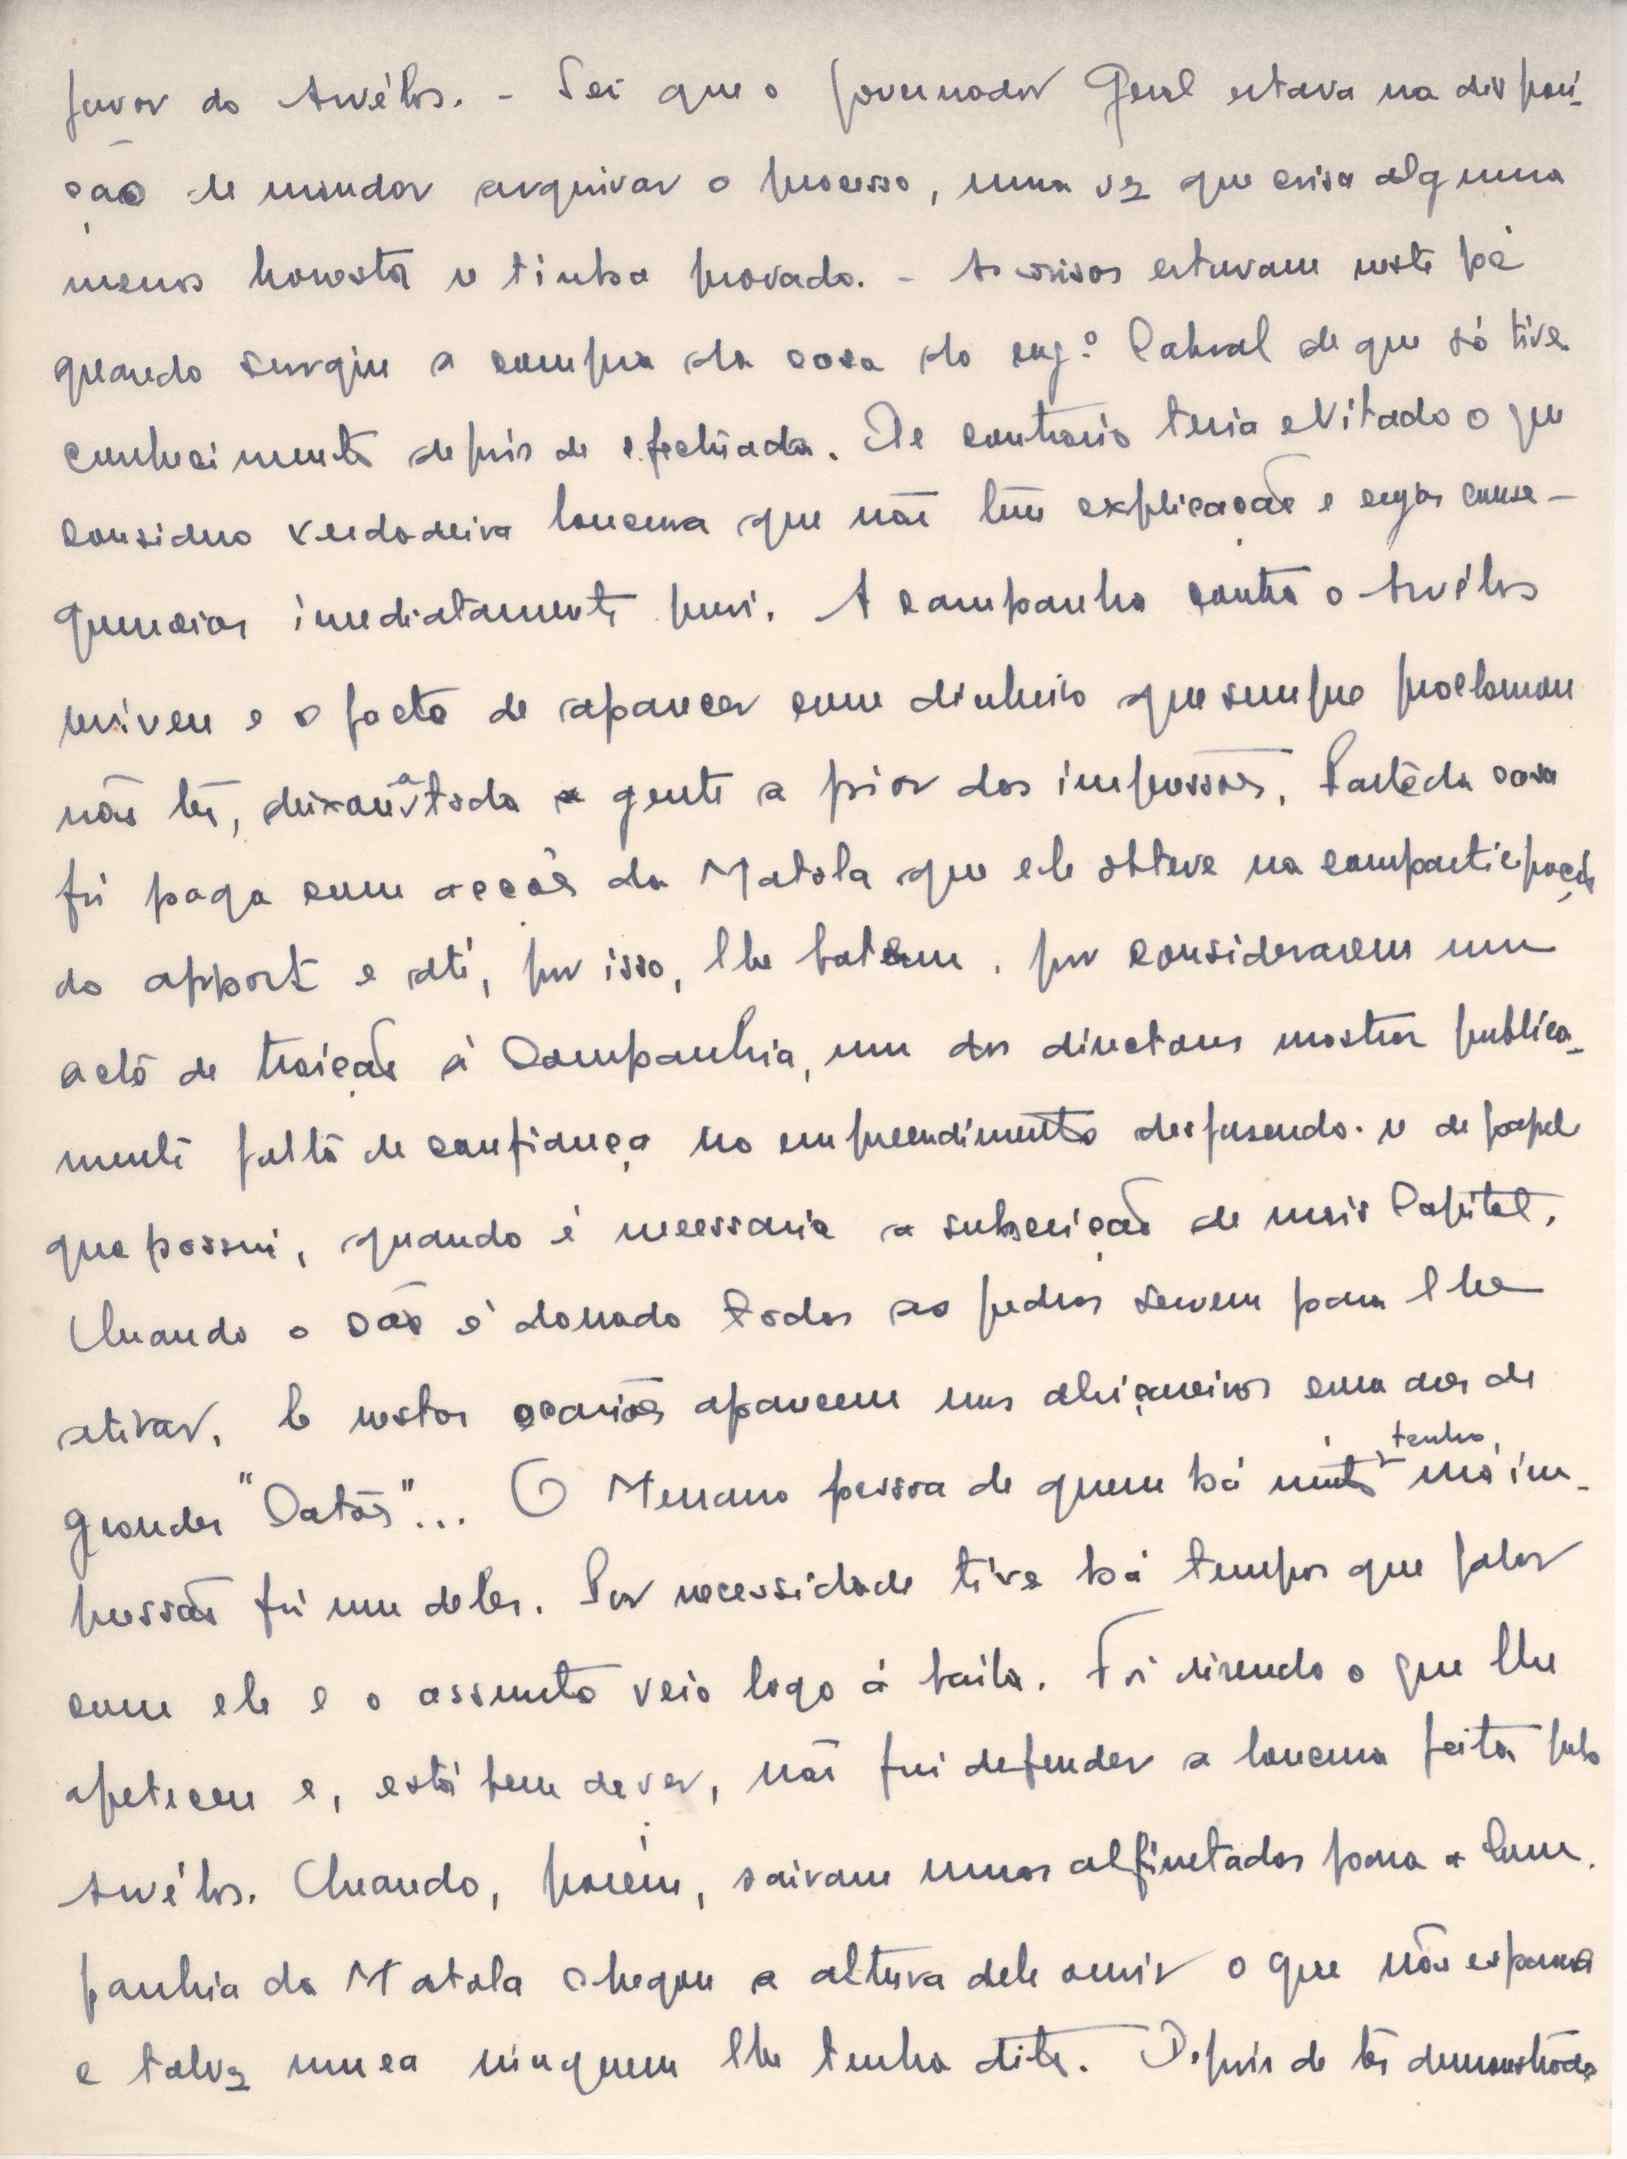 favor do Arvélos. - Sei que o governador Geral estava na disposi-
ção de mandar arquivar o processo, uma vez que coisa alguma
menos honesta se tinha provado. - As coisas estavam neste pé
quando surgiu a compra da casa do engº Cabral de que só tive
conhecimento depois de fechada. De contrario teria evitado o que
considero verdadeira loucura que não tem explicação e cujas conse-
quencias imediatamente previ. A campanha contra o Arvélos
reviveu e o facto de aparecer com dinheiro que sempre proclamou
não ter, deixou a toda a gente a pior das impressões. Parte da casa
foi paga com acções da Matola que ele obteve na comparticipação
do apport e até, por isso, lhe batem, por considerarem um
acto de traição á Companhia, um dos directores mostrar publica-
mente falta de confiança no empreendimento desfasendo-se de papel
que possui, quando é necessaria a subscrição de mais Capital.
Quando o cão é danado todas as pedras servem para lhe
atirar. E nestas ocasiões aparecem uns com ares de
grandes "Catões"... O Merrano pessoa de quem há muito tenho má im-
pressão foi um deles. Por necessidade tive há tempos que falar
com ele e o assunto veio logo á baila. Foi disendo o que lhe
apeteceu e, está bem de ver, não fui defender a loucura feita pelo
Arvélos. Quando, porém, sairam umas alfinetadas para a Com-
panhia da Matola chegou a altura dele ouvir o que não esperava
e talvez nunca ninguem lhe tenha dito. Depois de ter demonstrado